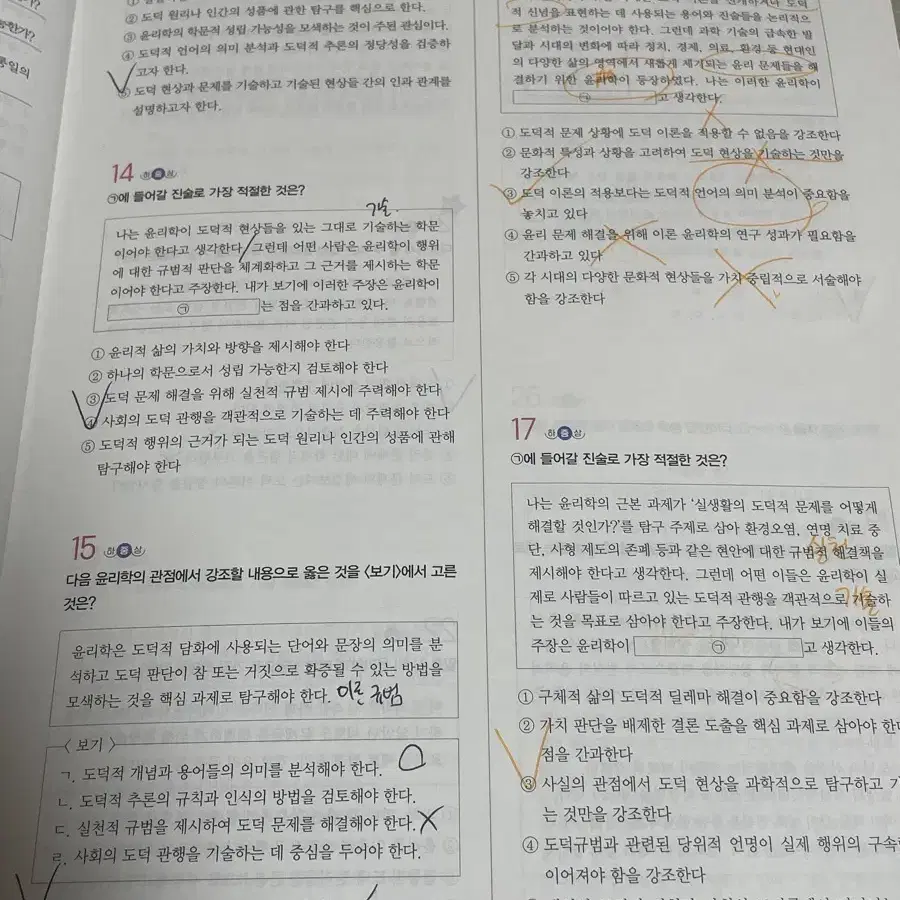 능한가?
통일의
② 도덕 원리나 인간의 성품에 관한 탐구를 핵심으로 한다.
③ 윤리학의 학문적 성립 가능성을 모색하는 것이 주된 관심이다.
④ 도덕적 언어의 의미 분석과 도덕적 추론의 정당성을 검증하
고자 한다.
⑤ 도덕 현상과 문제를 기술하고 기술된 현상들 간의 인과 관계를
설명하고자 한다.
14 하 중 상
㉠에 들어갈 진술로 가장 적절한 것은?
기술.
나는 윤리학이 도덕적 현상들을 있는 그대로 기술하는 학문
이어야 한다고 생각한다. 그런데 어떤 사람은 윤리학이 행위
에 대한 규범적 판단을 체계화하고 그 근거를 제시하는 학문
이어야 한다고 주장한다. 내가 보기에 이러한 주장은 윤리학이
㉠ 는 점을 간과하고 있다.
① 윤리적 삶의 가치와 방향을 제시해야 한다
② 하나의 학문으로서 성립 가능한지 검토해야 한다
③ 도덕 문제 해결을 위해 실천적 규범 제시에 주력해야 한다
④ 사회의 도덕 관행을 객관적으로 기술하는 데 주력해야 한다
⑤ 도덕적 행위의 근거가 되는 도덕 원리나 인간의 성품에 관해
탐구해야 한다
15 하 중 상
다음 윤리학의 관점에서 강조할 내용으로 옳은 것을 <보기>에서 고른
것은?
윤리학은 도덕적 담화에 사용되는 단어와 문장의 의미를 분
석하고 도덕 판단이 참 또는 거짓으로 확증될 수 있는 방법을
모색하는 것을 핵심 과제로 탐구해야 한다. 이론 규범
< 보기 >
ㄱ. 도덕적 개념과 용어들의 의미를 분석해야 한다.
ㄴ. 도덕적 추론의 규칙과 인식의 방법을 검토해야 한다.
ㄷ. 실천적 규범을 제시하여 도덕 문제를 해결해야 한다.
ㄹ. 사회의 도덕 관행을 기술하는 데 중심을 두어야 한다.
적 신념을 표현하는 데 사용되는 용어와 진술들을 논리적으
로 분석하는 것이어야 한다. 그런데 과학 기술의 급속한 발
달과 시대의 변화에 따라 정치, 경제, 의료, 환경 등 현대인
의 다양한 삶의 영역에서 새롭게 제기되는 윤리 문제들을 해
결하기 위한 윤리학이 등장하였다. 나는 이러한 윤리학이
㉠ 고 생각한다.
① 도덕적 문제 상황에 도덕 이론을 적용할 수 없음을 강조한다
② 문화적 특성과 상황을 고려하여 도덕 현상을 기술하는 것만을
강조한다
③ 도덕 이론의 적용보다는 도덕적 언어의 의미 분석이 중요함을
놓치고 있다
④ 윤리 문제 해결을 위해 이론 윤리학의 연구 성과가 필요함을
간과하고 있다
⑤ 각 시대의 다양한 문화적 현상들을 가치 중립적으로 서술해야
함을 강조한다
17 하 중 상
㉠에 들어갈 진술로 가장 적절한 것은?
나는 윤리학의 근본 과제가 '실생활의 도덕적 문제를 어떻게
해결할 것인가?'를 탐구 주제로 삼아 환경오염, 연명 치료 중
단, 사형 제도의 존폐 등과 같은 현안에 대한 규범적 해결책을
제시해야 한다고 생각한다. 그런데 어떤 이들은 윤리학이 실
제로 사람들이 따르고 있는 도덕적 관행을 객관적으로 기술하
는 것을 목표로 삼아야 한다고 주장한다. 내가 보기에 이들의
주장은 윤리학이 ㉠ 고 생각한다.
① 구체적 삶의 도덕적 딜레마 해결이 중요함을 강조한다
② 가치 판단을 배제한 결론 도출을 핵심 과제로 삼아야 한다
점을 간과한다
③ 사실의 관점에서 도덕 현상을 과학적으로 탐구하고
는 것만을 강조한다
④ 도덕규범과 관련된 당위적 언명이 실제 행위의 구속
이어져야 함을 강조한다